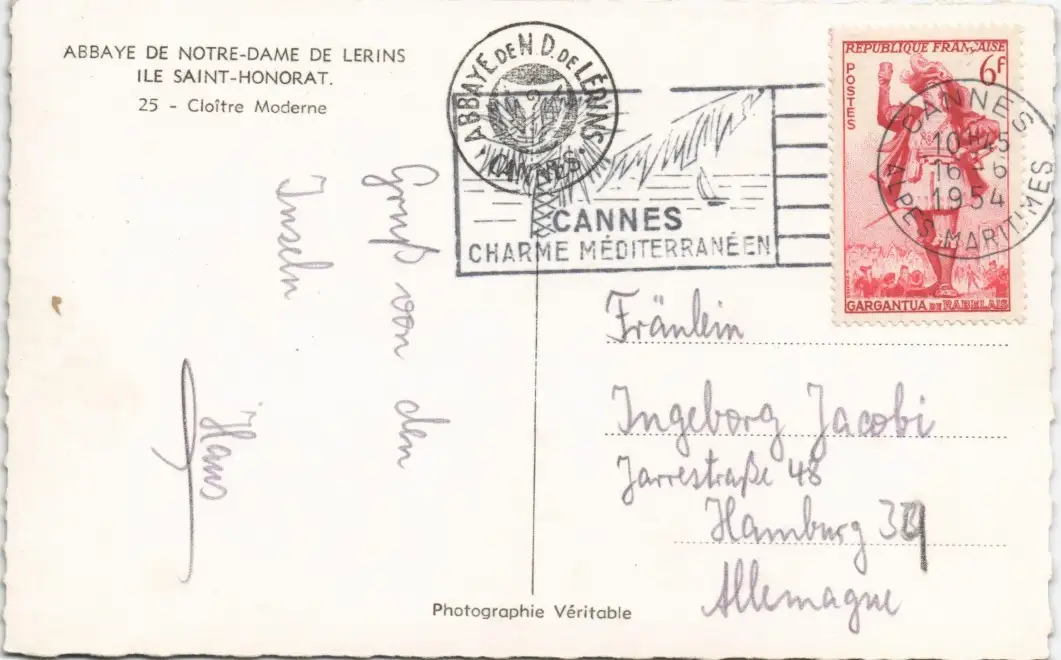 ABBAYE DE NOTRE-DAME DE LERINS
ILE SAINT-HONORAT.
25 - Cloître Moderne
ABBAYE DE N.D. DE LÉRINS
CANNES
CANNES
CHARME MÉDITERRANÉEN
REPUBLIQUE FRANÇAISE
6f
POSTES
GARGANTUA DE RABELAIS
CANNES
10H45
16-6
1954
ALPES-MARITIMES
Gruß von den
Inseln
Hans
Fräulein
Ingeborg Jacobi
Jarrestraße 48
Hamburg 39
Allemagne
Photographie Véritable